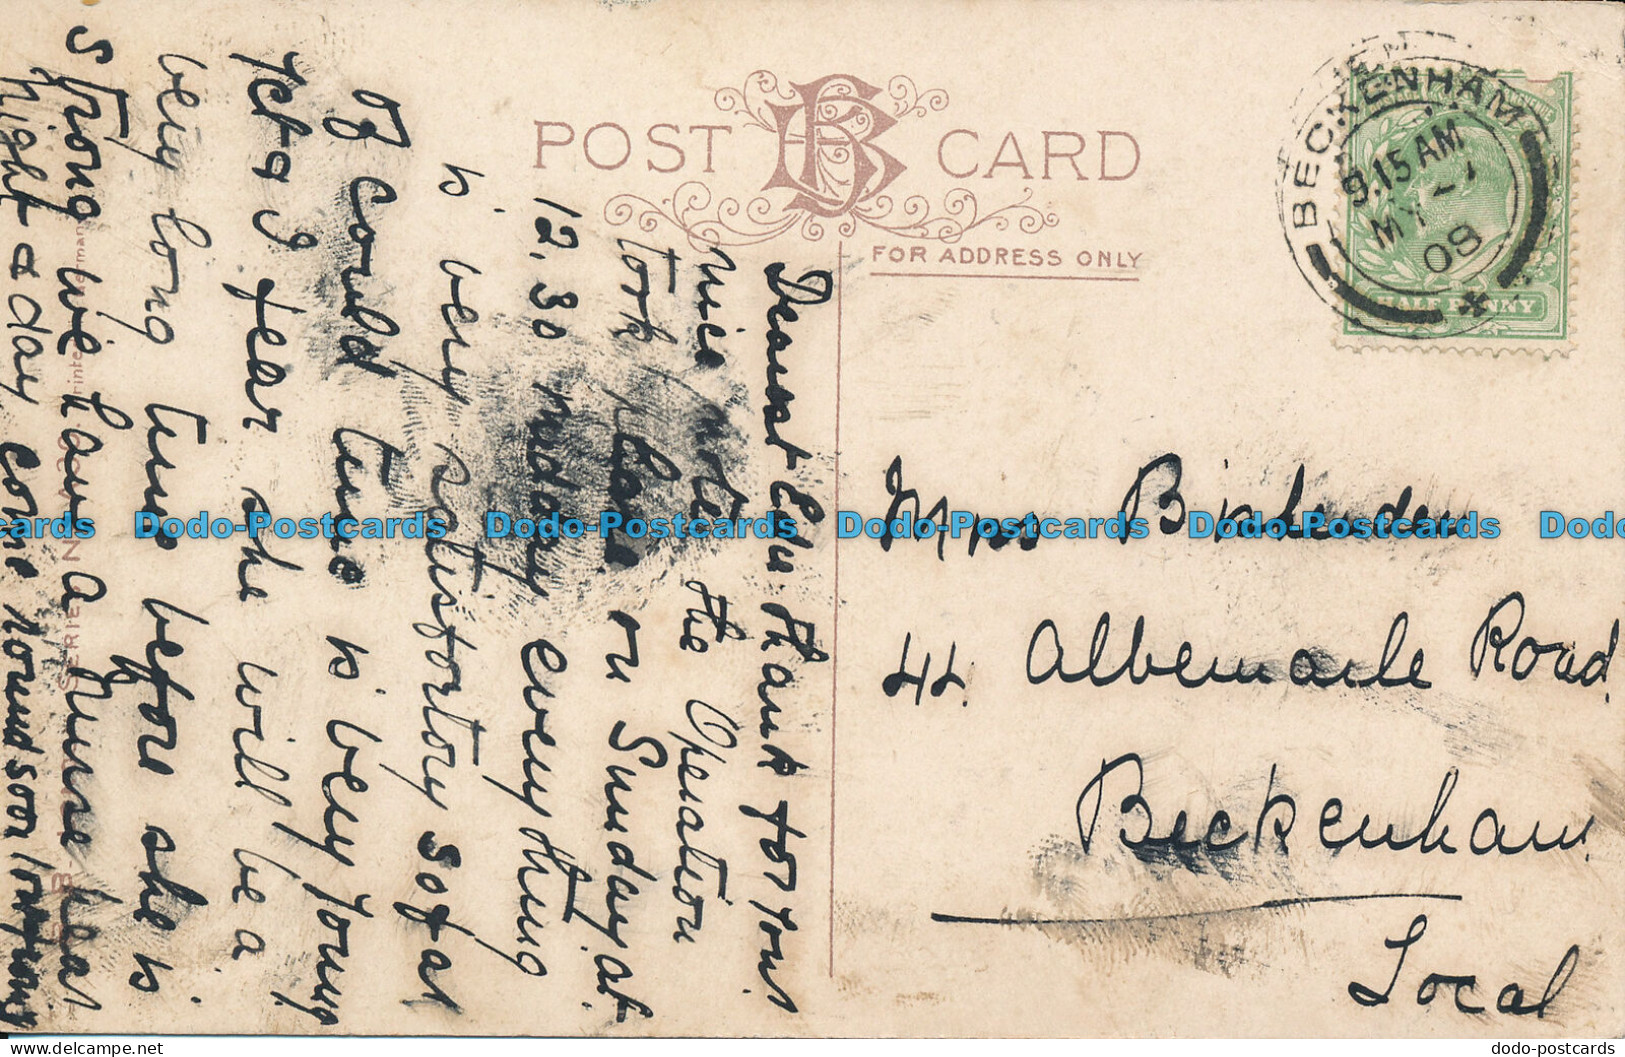 POST CARD
FOR ADDRESS ONLY
BECKENHAM
9.15 AM
MY
08
HALF PENNY
Mrs
44 Albemarle Road
Beckenham
Local
Dearest Edu. thank for your
nice note the Operation
took place on Sunday at
12.30 midday everything
is very satisfactory so far
of could time is very young
yet & I fear she will be a
very long time before she is
strong we have a Nurse here
night & day come round soon
SERIE
Dodo-Postcards Dodo-Postcards Dodo-Postcards Dodo-Postcards
dodo-postcards.com